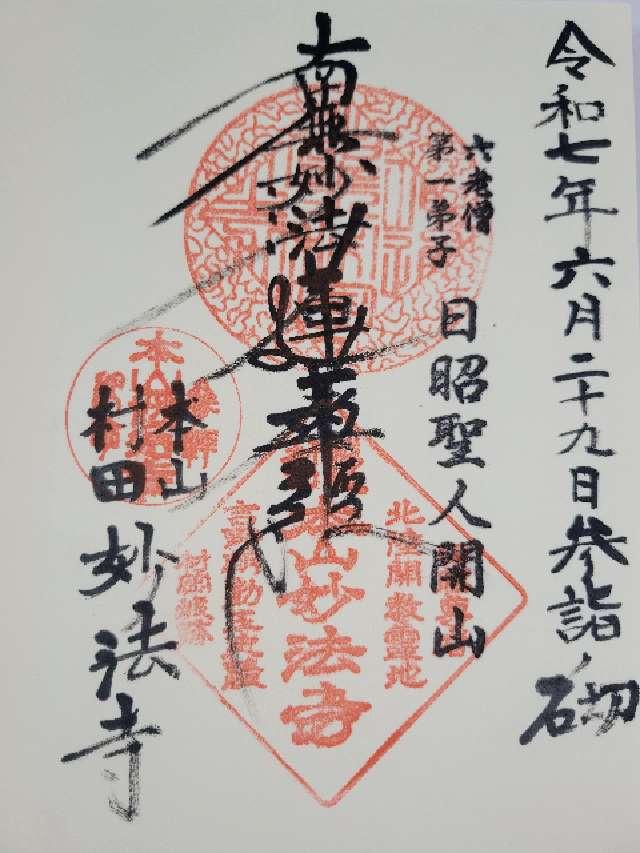 令和七年六月二十九日参詣ノ砌
六老僧
第一弟子
日昭聖人開山
南無妙法蓮華経
本山
村田
妙法寺
北陸開教霊地
本山妙法寺